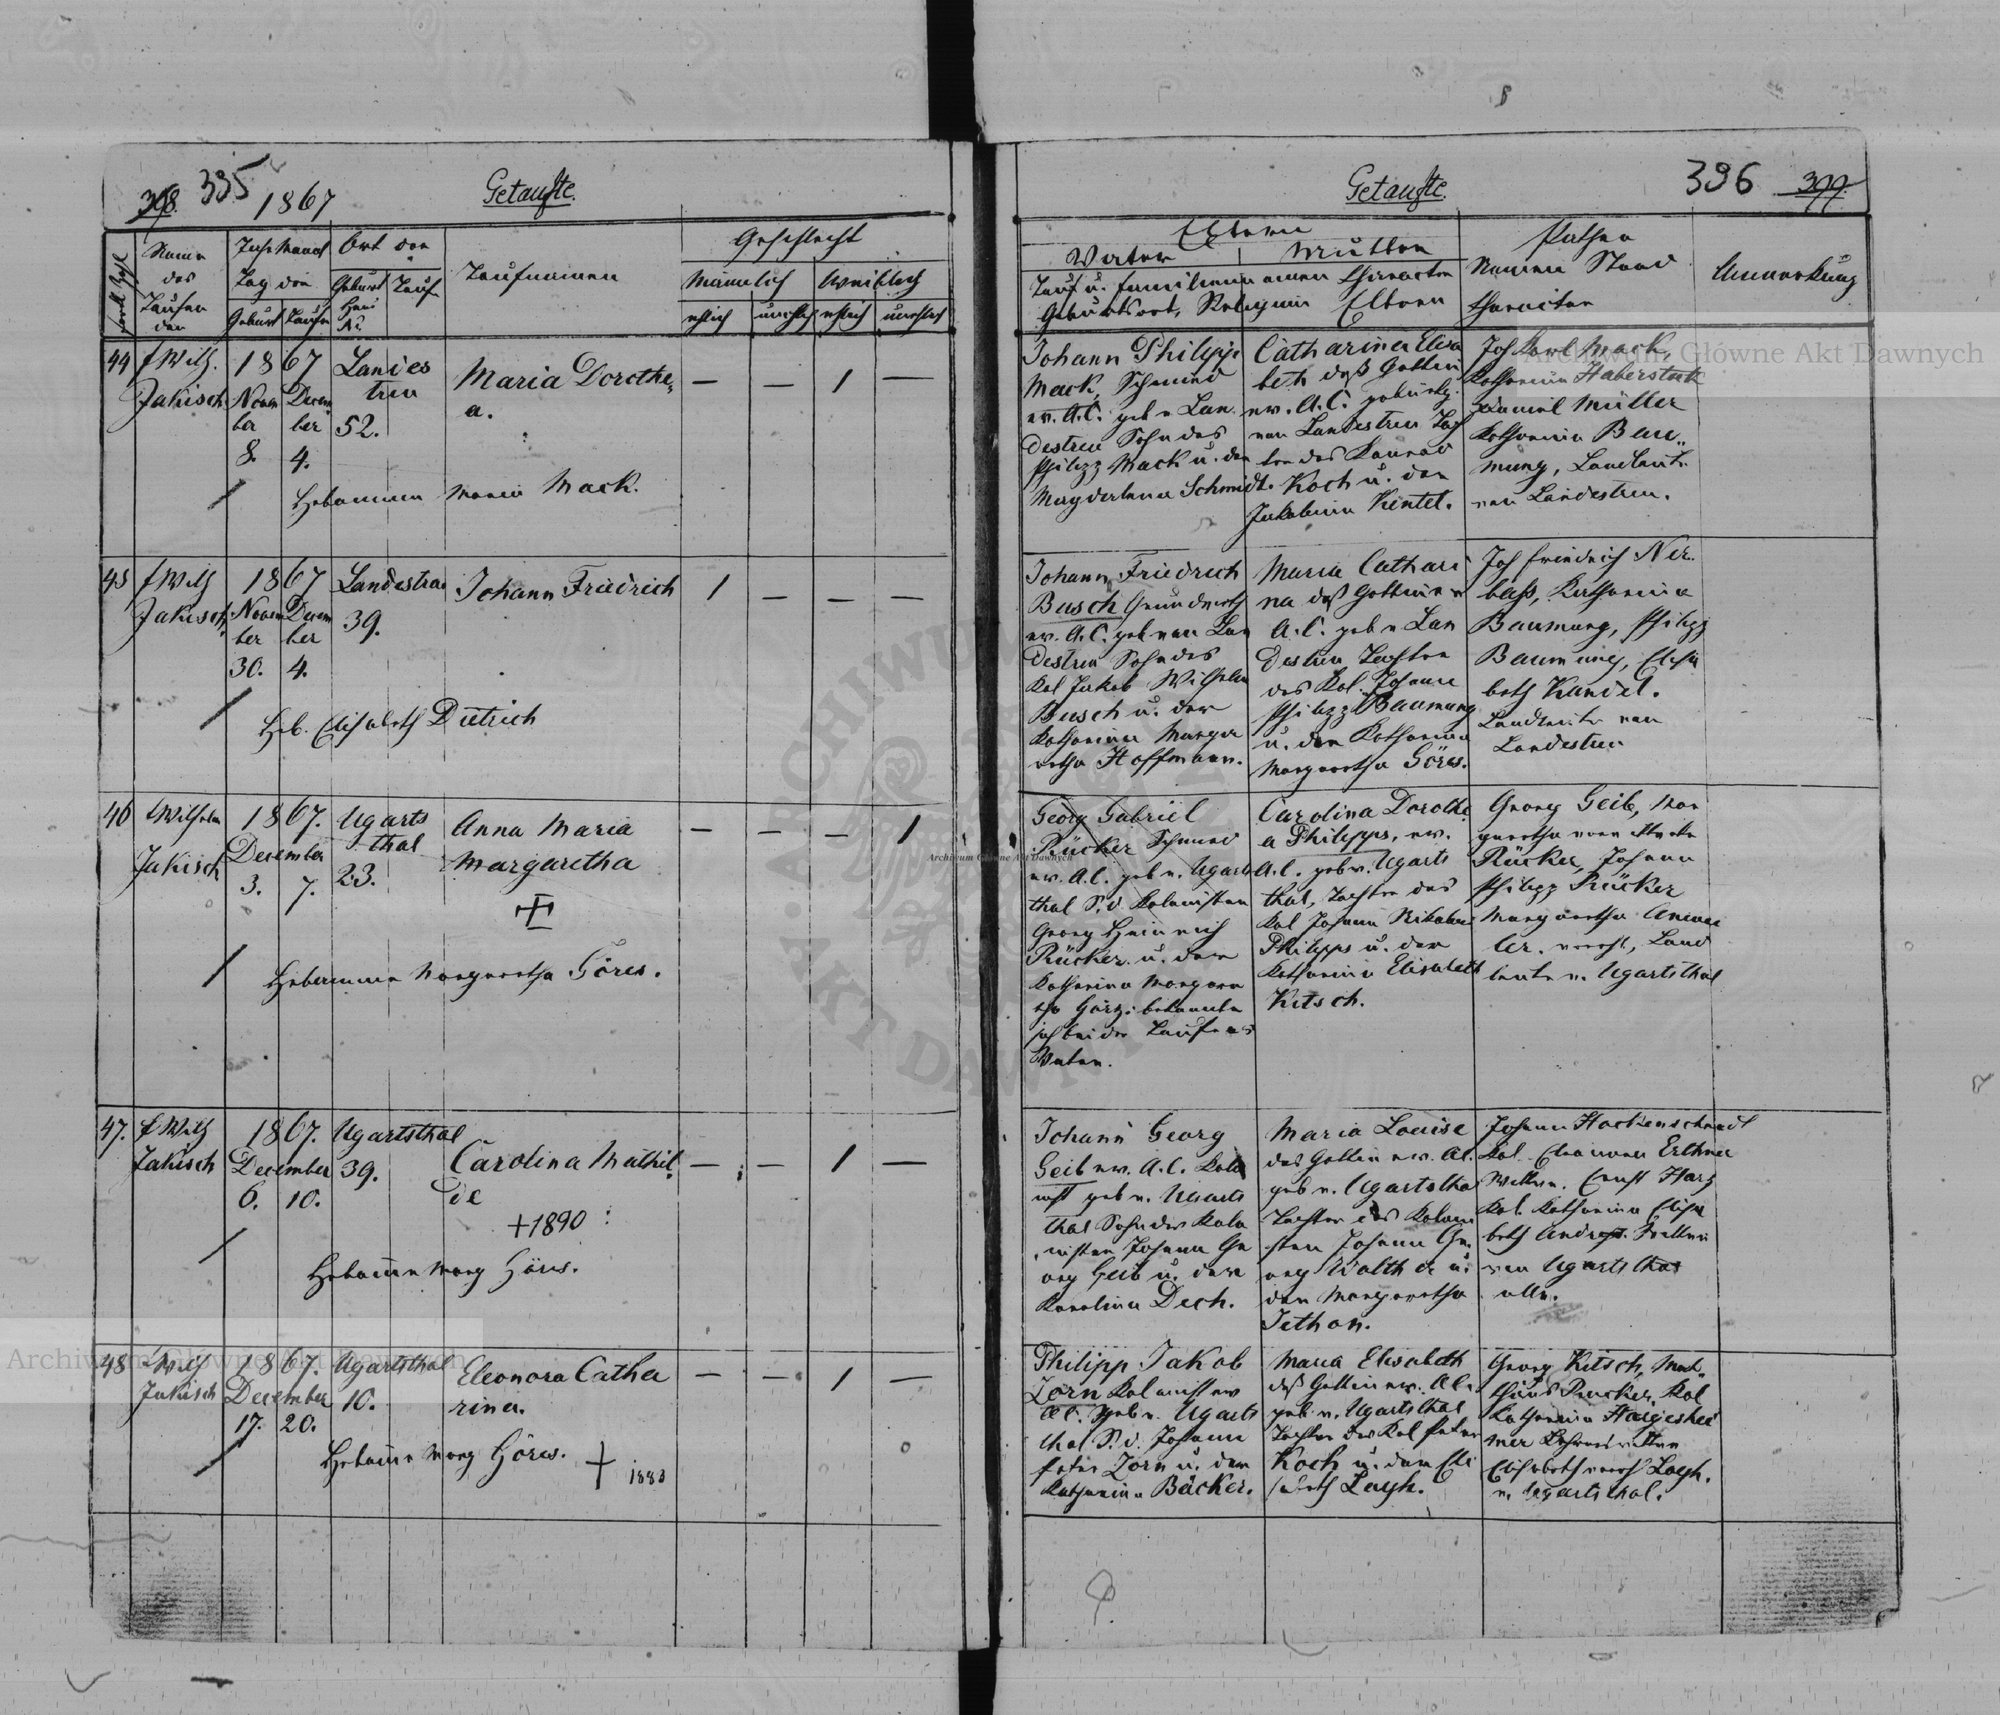 398. 395
1867
Getaufte.
Name des Taufenden
Jahr Monat Tag der
Geburt Taufe
Ort der
Geburt Haus No Taufe
Taufnamen
Geschlecht
Männlich Weiblich
ehlich unehlich ehlich unehlich
44 Wilh. Jakisch
1867
November 8. December 4.
Landestreu 52.
Maria Dorothea.
— — 1 —
Hebamme Maria Mack.
45 Wilh Jakisch
1867
November 30. December 4.
Landestreu 39.
Johann Friedrich
1 — — —
Heb. Elisabeth Dietrich
46 Wilhelm Jakisch
1867.
December 3. 7.
Ugartsthal 23.
Anna Maria
Margaretha
— — — 1
Hebamme Margaretha Göres.
47. Wilh Jakisch
1867.
December 6. 10.
Ugartsthal 39.
Carolina Mathilde
— — 1 —
+1890
Hebamme Marg Göres.
48 Wilh Jakisch
1867.
December 17. 20.
Ugartsthal 10.
Eleonora Catharina.
— — 1 —
Hebamme Marg Göres. + 1883
Getaufte.
396 399.
Eltern
Vater Mutter
Tauf u. Familiennamen Character
Geburtsort, Religion Eltern
Pathen
Namen Stand
Character
Anmerkung
Johann Philipp
Mack, Schmied
ev. A.C. geb v. Lan
destreu Sohn des
Philipp Mack u. der
Magdalena Schmidt.
Catharina Elisa
beth dess Gattin
ev. A.C. gebürtig
von Landestreu Toch
ter des Konrad
Koch u. der
Jakobina Kentel.
Joh Karl Mack,
Katharina Haberstock
Daniel Müller
Katharina Bau
mung, Landleute
von Landestreu.
Johann Friedrich
Busch Grundwirth
ev. A.C. geb von Lan
destreu Sohn des
Kol Jakob Wilhelm
Busch u. der
Katharina Marga
retha Hoffmann.
Maria Cathari
na dess Gattin ev
A.C. geb v Lan
destreu Tochter
des Kol. Johann
Philipp Baumung
u. der Katharina
Margaretha Göres.
Joh Friedrich Ner
bass, Katharina
Baumung, Philipp
Baumung, Elisa
beth Kandel.
Landleute von
Landestreu
Georg Gabriel
Rücker Schmied
ev. A.C. geb v. Ugarts
thal S. d. Kolonisten
Georg Heinrich
Rücker u. der
Katharina Margare
tha Görz: bekannte
sich bei der Taufe als
Vater.
Carolina Dorothe
a Philipps, ev.
A.C. geb v. Ugarts
thal, Tochter des
Kol Johann Nikolaus
Philipps u. der
Katharina Elisabeth
Kitsch.
Georg Geib, Mar
garetha
Rücker, Johann
Philipp Rücker
Margaretha
Landleute v. Ugartsthal
Johann Georg
Geib ev. A.C. Kolo
nist geb v. Ugarts
thal Sohn des Kolo
nisten Johann Ge
org Geib u. der
Karolina Dech.
Maria Louise
des Gattin ev. A.C.
geb v. Ugartsthal
Tochter des Koloni
sten Johann Ge
org Walther u.
der Margaretha
Jethon.
Johann Hockenschnadt
Kol. Eleonora
Ernst Harz
Kol. Katharina Elisa
beth
von Ugartsthal
alle.
Philipp Jakob
Zorn Kolonist ev
A.C. geb v. Ugarts
thal S. d. Johann
Peter Zorn u. der
Katharina Bäcker.
Maria Elisabeth
dess Gattin ev. A.C.
geb v. Ugartsthal
Tochter des Kol Peter
Koch u. der Eli
sabeth Loyh.
Georg Kitsch, Mat
thäus Rucker, Kol
Katharina
Elisabeth Loyh.
v. Ugartsthal.
Archiwum Główne Akt Dawnych
Archiwum Główne Akt Dawnych
Archiwum Główne Akt Dawnych